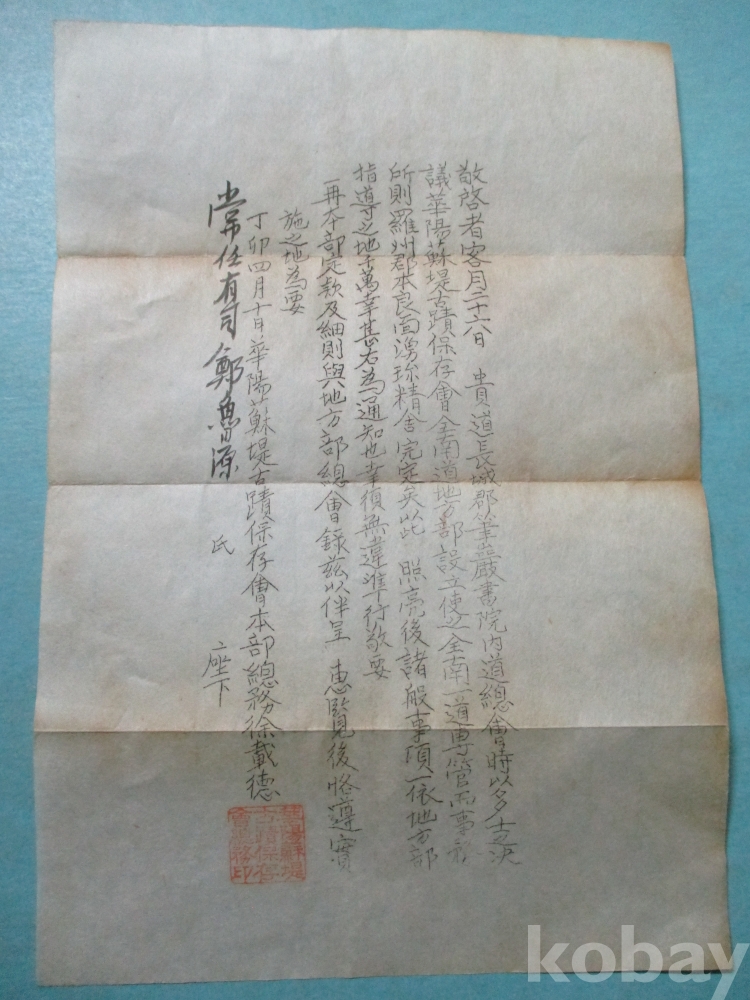 敬啓者客月二十六日 貴道長城郡筆巖書院內道總會時以多士之決
議華陽蘇堤古蹟保存會全南道地方部設立使之全南一道專管而事務
所則羅州郡本良面湧珍精舍完定矣以此 照亮後諸般事項一依地方部
指導之地千萬幸甚右為通知也幸須無違準行敬要
再本部定款及細則與地方部總會錄玆以伴呈 惠覽後恪遵實
施之地為要
丁卯四月十日華陽蘇堤古蹟保存會本部總務徐載德
常任有司 鄭魯源 氏 座下
華陽蘇堤
古蹟保存
會總務印
kobay